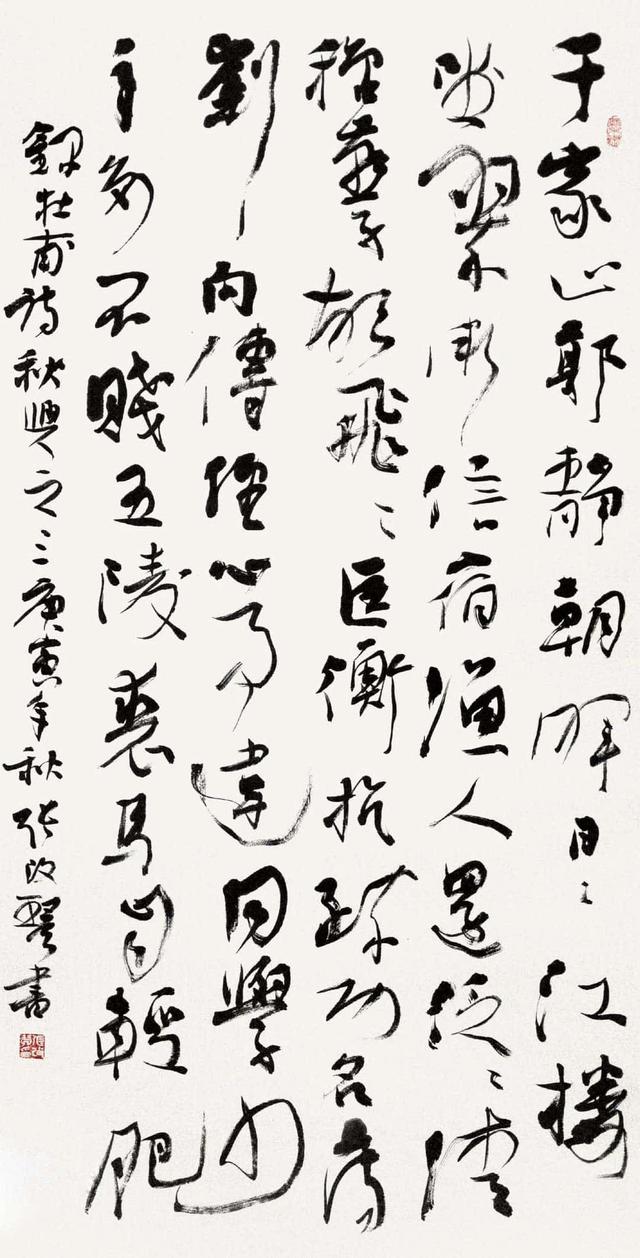 千家山郭靜朝暉日〻江樓
坐翠微信宿漁人還泛〻清
秋燕子故飛〻匡衡抗疏功名薄
劉向傳經心事違同學少
年多不賤五陵裘馬自輕肥
錄杜甫詩秋興之三庚寅年秋張改琴書